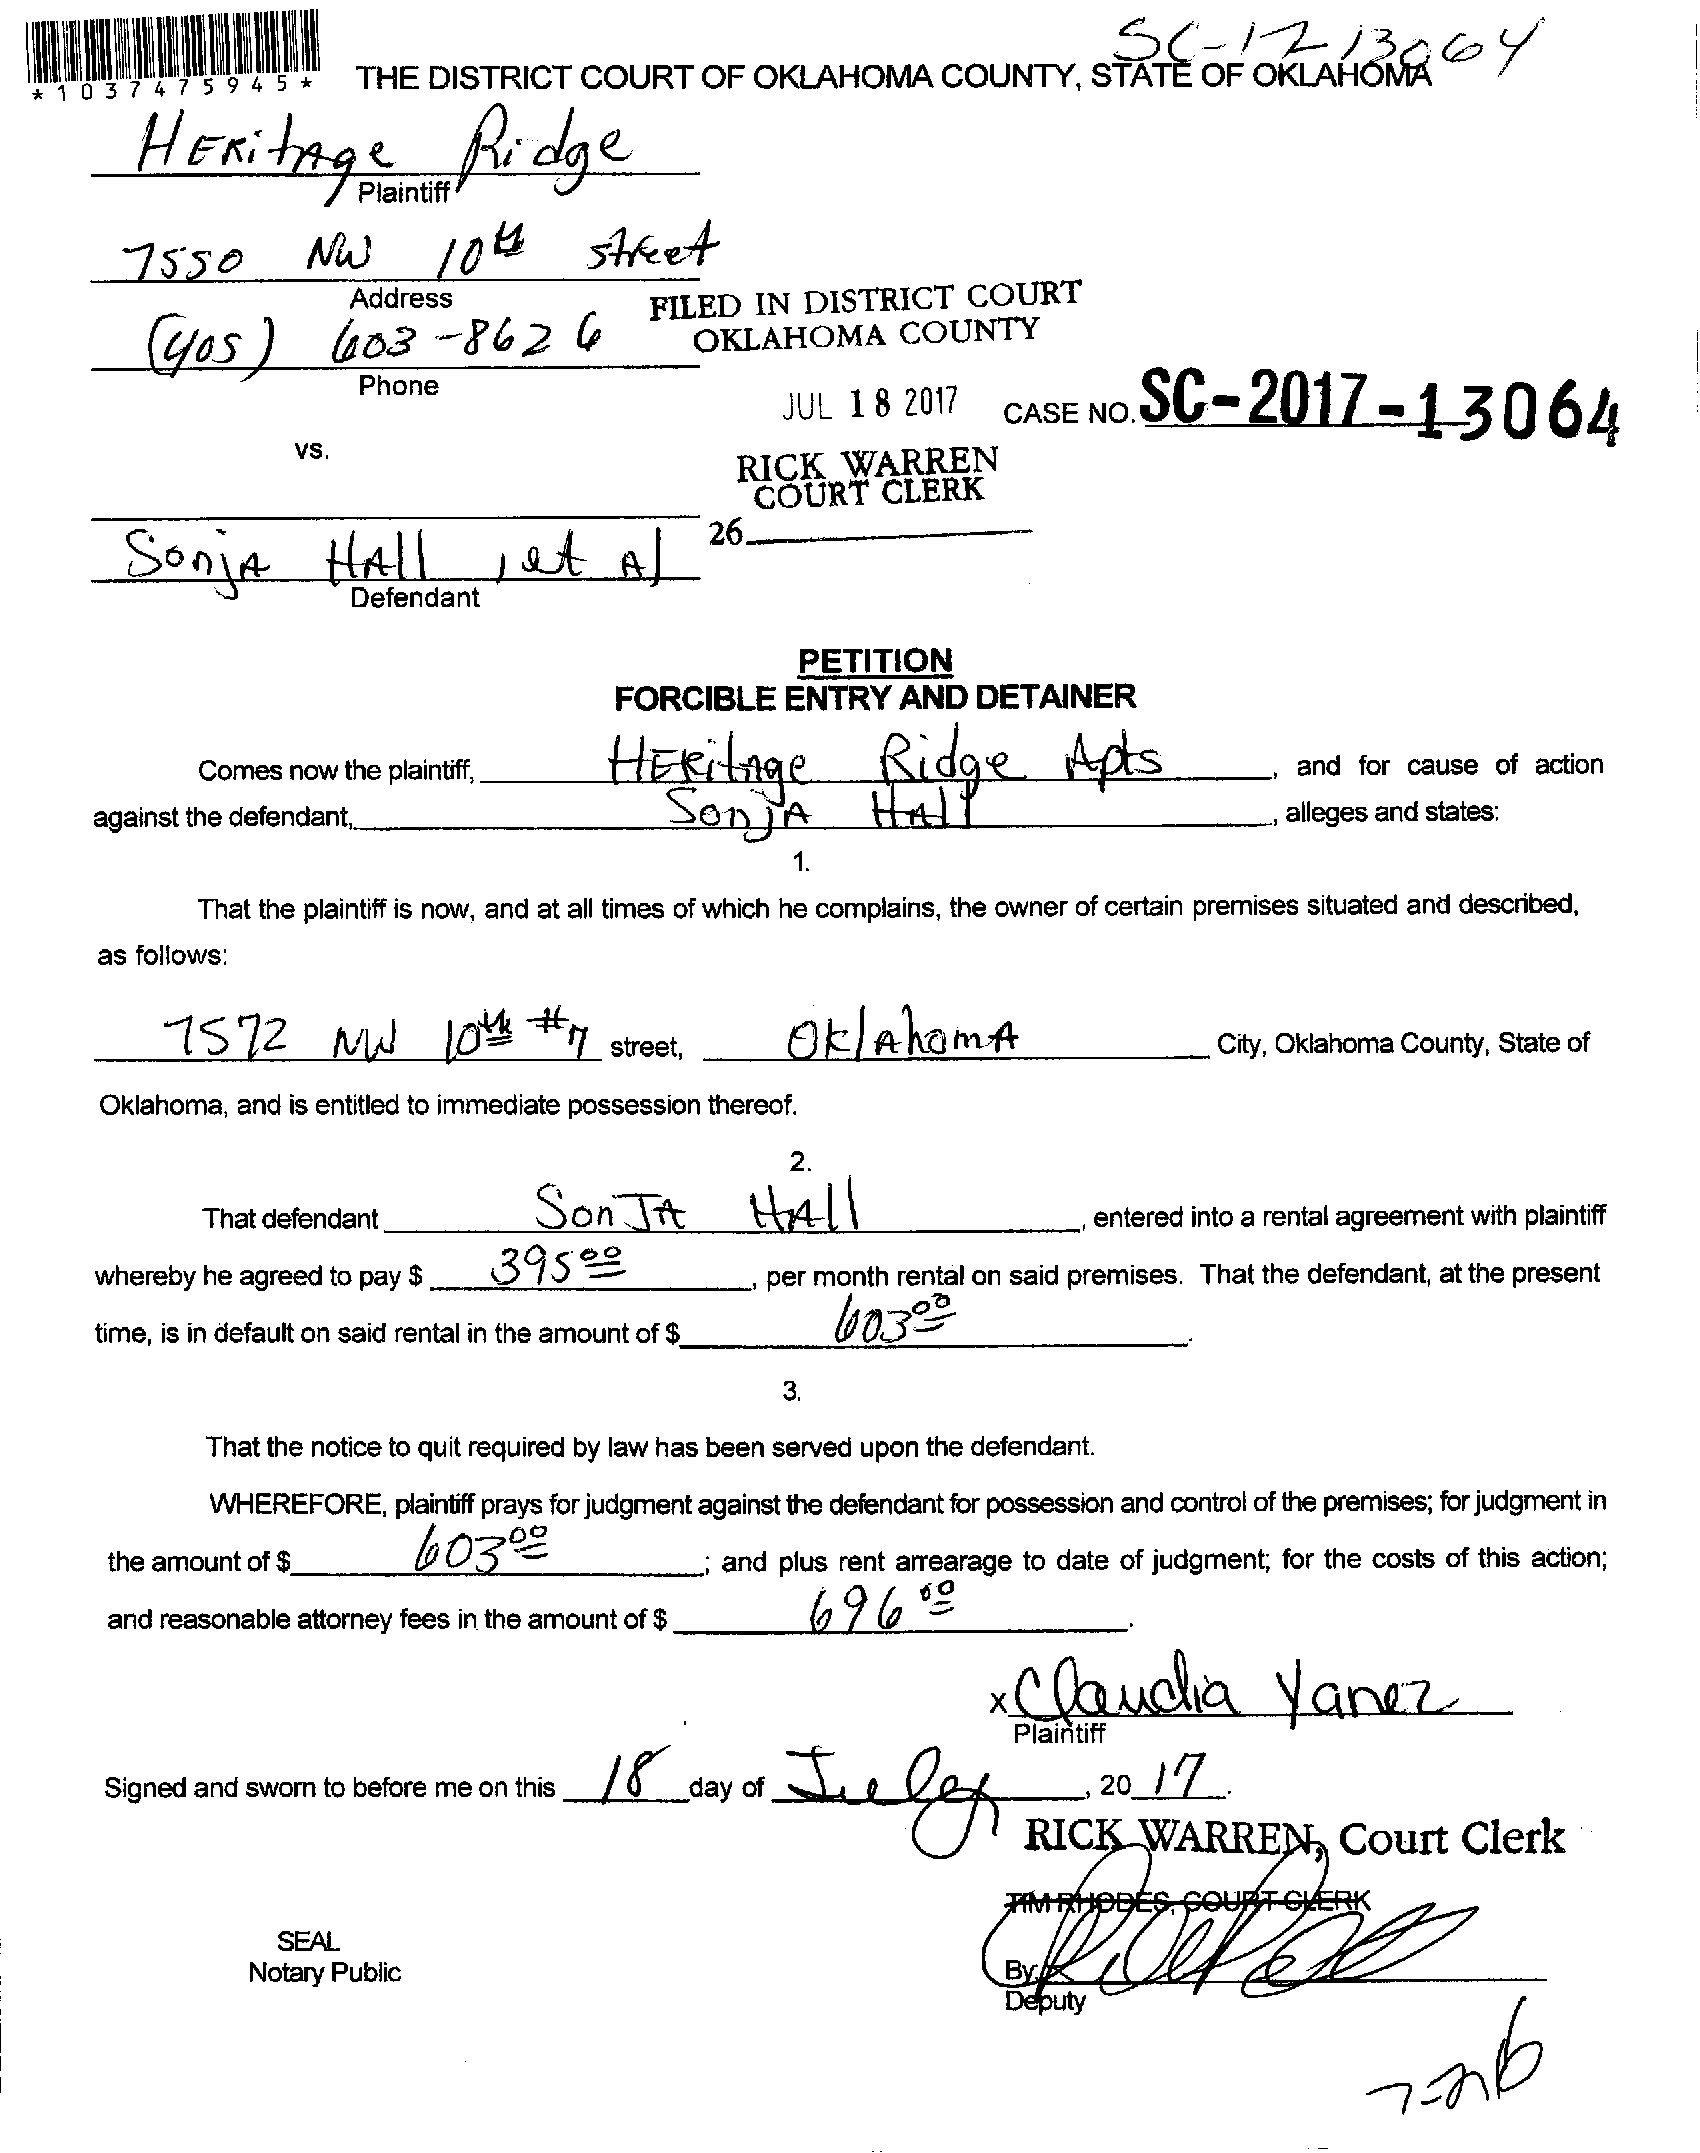 SC-17-13064
*1037475945*
THE DISTRICT COURT OF OKLAHOMA COUNTY, STATE OF OKLAHOMA
HERitAge Ridge
Plaintiff
7550 NW 10th street
Address
(405) 603-8626
Phone
FILED IN DISTRICT COURT
OKLAHOMA COUNTY
JUL 18 2017
CASE NO. SC-2017-13064
vs.
RICK WARREN
COURT CLERK
26
SonjA HAll, et Al
Defendant
PETITION
FORCIBLE ENTRY AND DETAINER
Comes now the plaintiff, HERitAge Ridge Apts, and for cause of action
against the defendant, SonjA HAll, alleges and states:
1.
That the plaintiff is now, and at all times of which he complains, the owner of certain premises situated and described,
as follows:
7572 NW 10th #7 street, OklAhomA City, Oklahoma County, State of
Oklahoma, and is entitled to immediate possession thereof.
2.
That defendant SonJA HAll, entered into a rental agreement with plaintiff
whereby he agreed to pay $ 395 00, per month rental on said premises. That the defendant, at the present
time, is in default on said rental in the amount of $ 603 00.
3.
That the notice to quit required by law has been served upon the defendant.
WHEREFORE, plaintiff prays for judgment against the defendant for possession and control of the premises; for judgment in
the amount of $ 603 00; and plus rent arrearage to date of judgment; for the costs of this action;
and reasonable attorney fees in the amount of $ 696 00.
x Claudia Yanez
Plaintiff
Signed and sworn to before me on this 18 day of July, 20 17.
RICK WARREN, Court Clerk
TIM RHODES, COURT CLERK
SEAL
Notary Public
By
Deputy